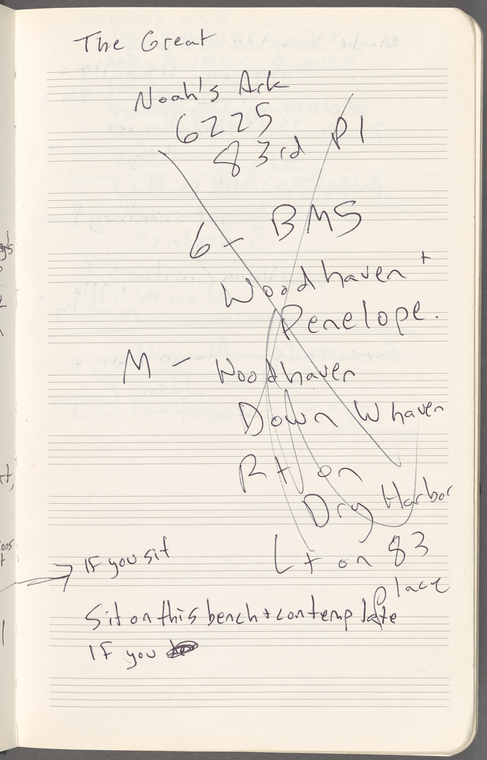 The Great
Noah's Ark
6225
83rd Pl
6 - BMS
Woodhaven +
Penelope.
M - Woodhaven
Down Whaven
Rt on
Dry Harbor
Lt on 83
Place
If you sit
Sit on this bench + contemplate
If you